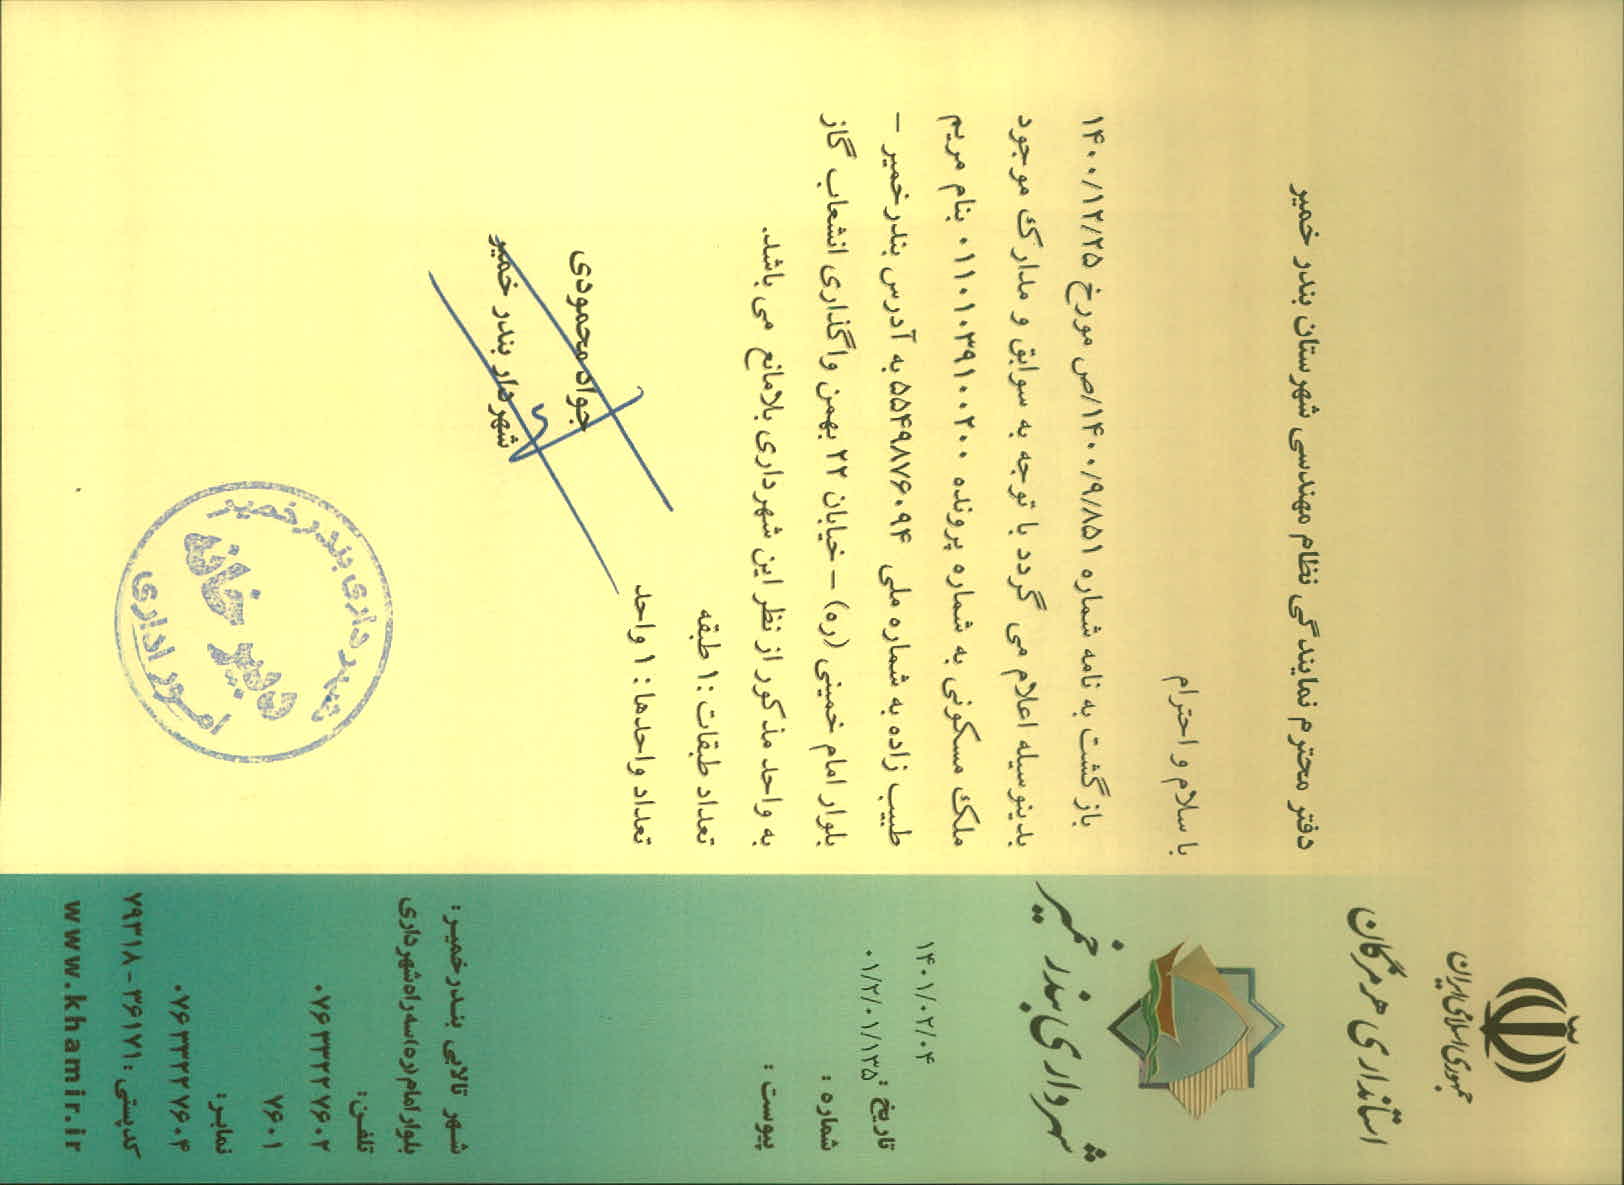 جمهوری اسلامی ایران
استانداری هرمزگان
شهرداری بندر خمیر
۱۴۰۱/۰۲/۰۴
تاریخ :
۰۱/۲/۰۱/۱۳۵
شماره :
پیوست :
دفتر محترم نمایندگی نظام مهندسی شهرستان بندر خمیر
با سلام و احترام
بازگشت به نامه شماره ۱۴۰۰/۹/۸۵۱/ص مورخ ۱۴۰۰/۱۲/۲۵
بدینوسیله اعلام می گردد با توجه به سوابق و مدارک موجود
ملک مسکونی به شماره پرونده ۰۱۱۰۱۰۳۹۱۰۰۲۰۰ بنام مریم
طبیب زاده به شماره ملی ۵۵۴۹۸۷۶۰۹۴ به آدرس بندرخمیر –
بلوار امام خمینی (ره) – خیابان ۲۲ بهمن واگذاری انشعاب گاز
به واحد مذکور از نظر این شهرداری بلامانع می باشد.
تعداد طبقات :۱ طبقه
تعداد واحدها : ۱ واحد
جواد محمودی
شهردار بندر خمیر
شهرداری بندر خمیر
دبیرخانه
امور اداری
شهر تالابی بندرخمیر:
بلوار امام(ره)سه راه شهرداری
تلفن:
۰۷۶۳۳۲۲۷۶۰۲
۷۶۰۱
نمابر:
۰۷۶۳۳۲۲۷۶۰۴
کدپستی : ۳۶۱۷۱ - ۷۹۳۱۸
www.khamir.ir